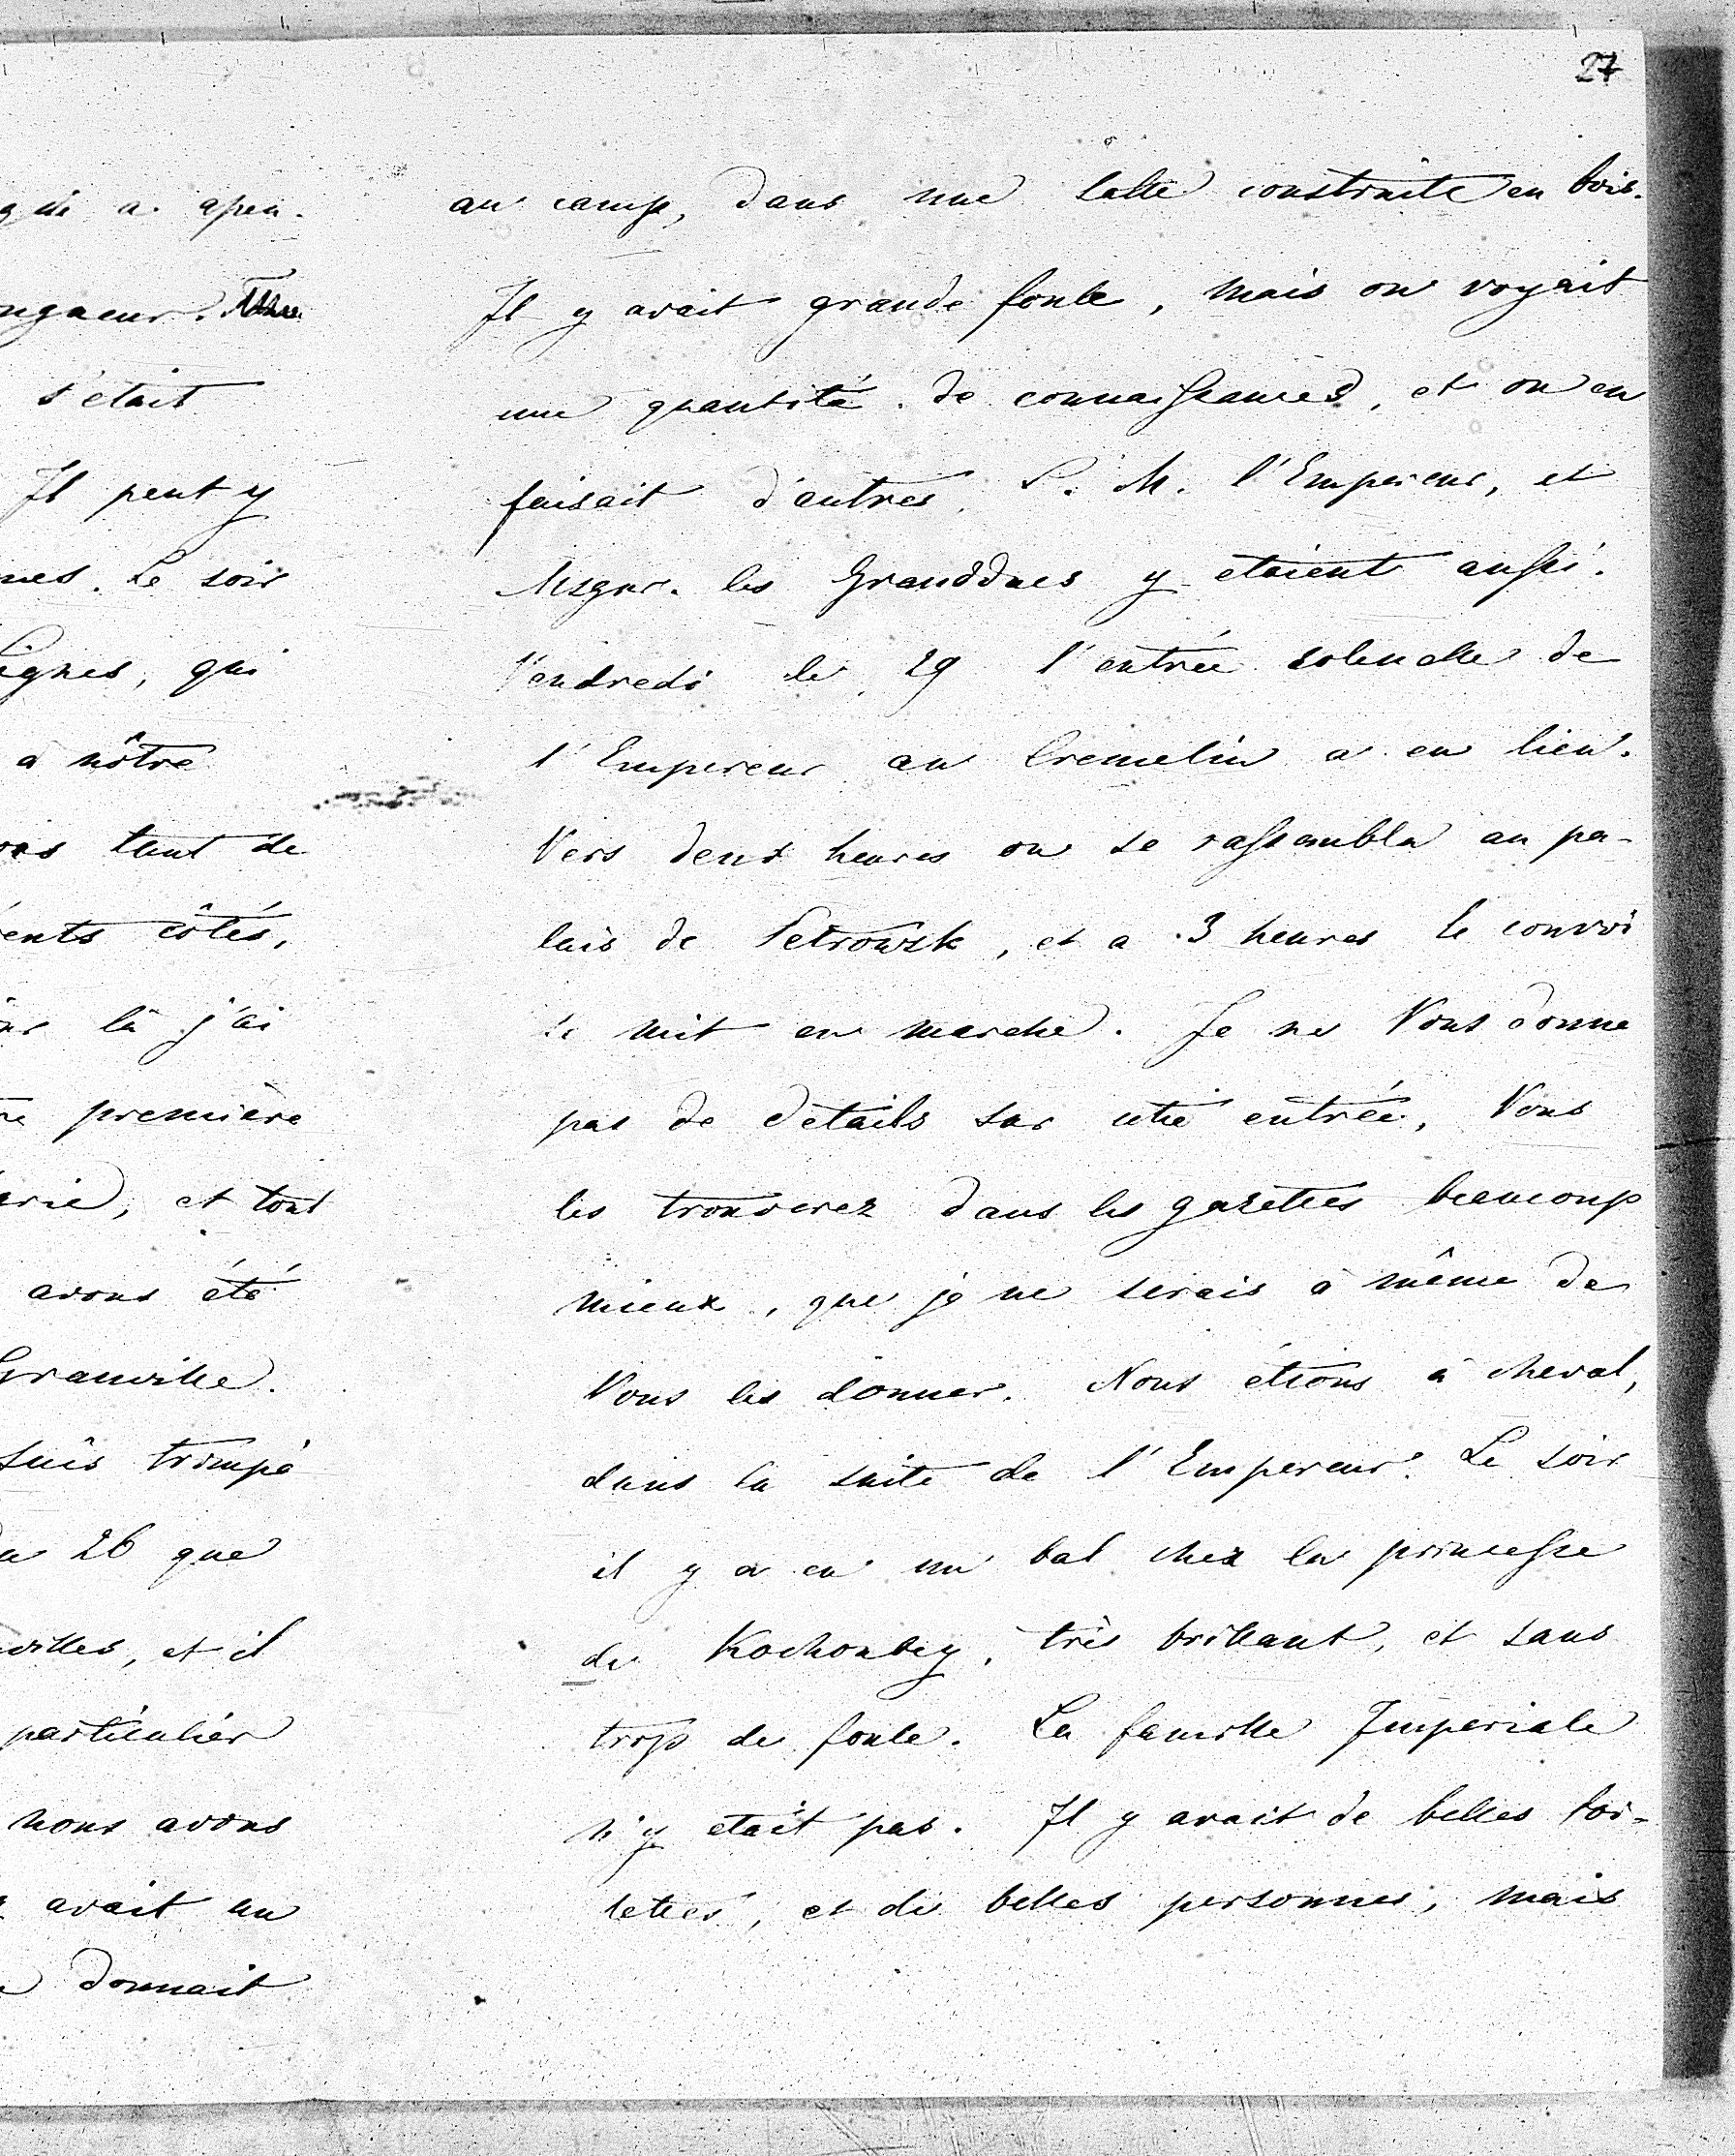 27
qui a apeu-
ongueur.
s'était
Il peut y
mes. Le soir
Lignes, qui
a nôtre
tant de
ents côtés,
là j'ai
première
erie, et tout
avons été
Granville.
suis trompé
26 que
villes, et il
particulier
nous avons
avait un
donnait
au camp, dans une salle construite en bois.
Il y avait grande foule, mais on voyait
une quantité de connaissances, et on en
faisait d'autres. S. M. l'Empereur, et
Msgnr. les Grandducs y etaient aussi.
Vendredi le 29 l'entrée solenelle de
l'Empereur au Cremelin a eu lieu.
Vers deux heures on se rassembla au pa-
lais de Petrowsk, et a 3 heures le convoi
se mit en marche. Je ne Vous donne
pas de détails sur cette entrée, Vous
les trouverez dans les gazettes beaucoup
mieux, que je ne serais à même de
Vous les donner. Nous étions à cheval,
dans la suite de l'Empereur. Le soir
il y a eu un bal chez la princesse
de Kochoubey, très brillant, et sans
trop de foule. La famille Imperiale
n'y etait pas. Il y avait de belles toi-
lettes, et de belles personnes, mais